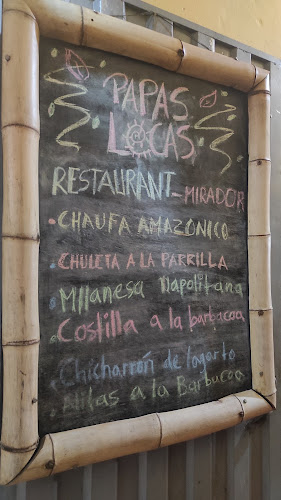 PAPAS
LOCAS
RESTAURANT_MIRADOR
• CHAUFA AMAZONICO
• CHULETA A LA PARRILLA
• Milanesa Napolitana
• Costilla a la barbacoa
• Chicharrón de lagarto
• Alitas a la Barbacoa